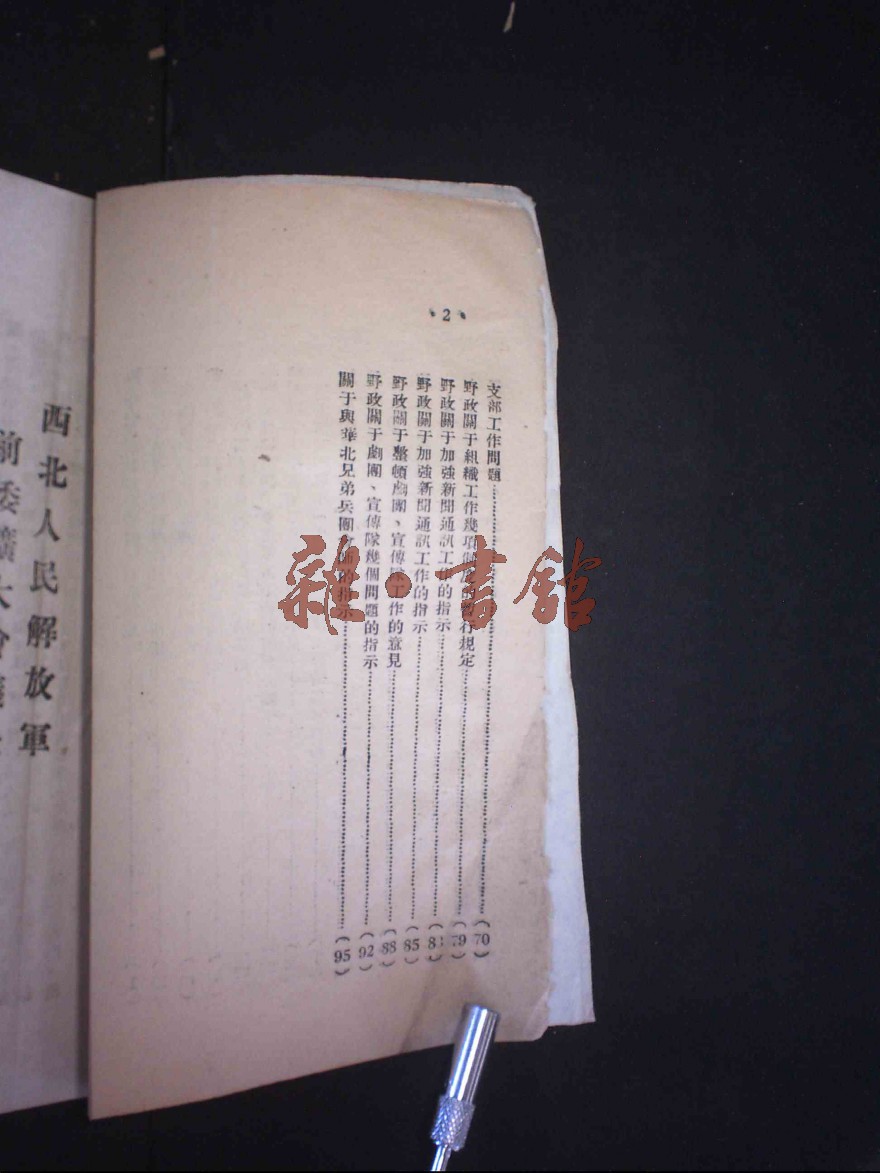 ·2·
支部工作問題 (70)
野政關于組織工作幾項制度的暫行規定 (79)
野政關于加強新聞通訊工作的指示 (8
野政關于加強新聞通訊工作的指示 (85)
野政關于整頓劇團、宣傳隊工作的意見 (88)
野政關于劇團、宣傳隊幾個問題的指示 (92)
關于與華北兄弟兵團會師的指示 (95)
西北人民解放軍
前委擴大會議
雜·書館